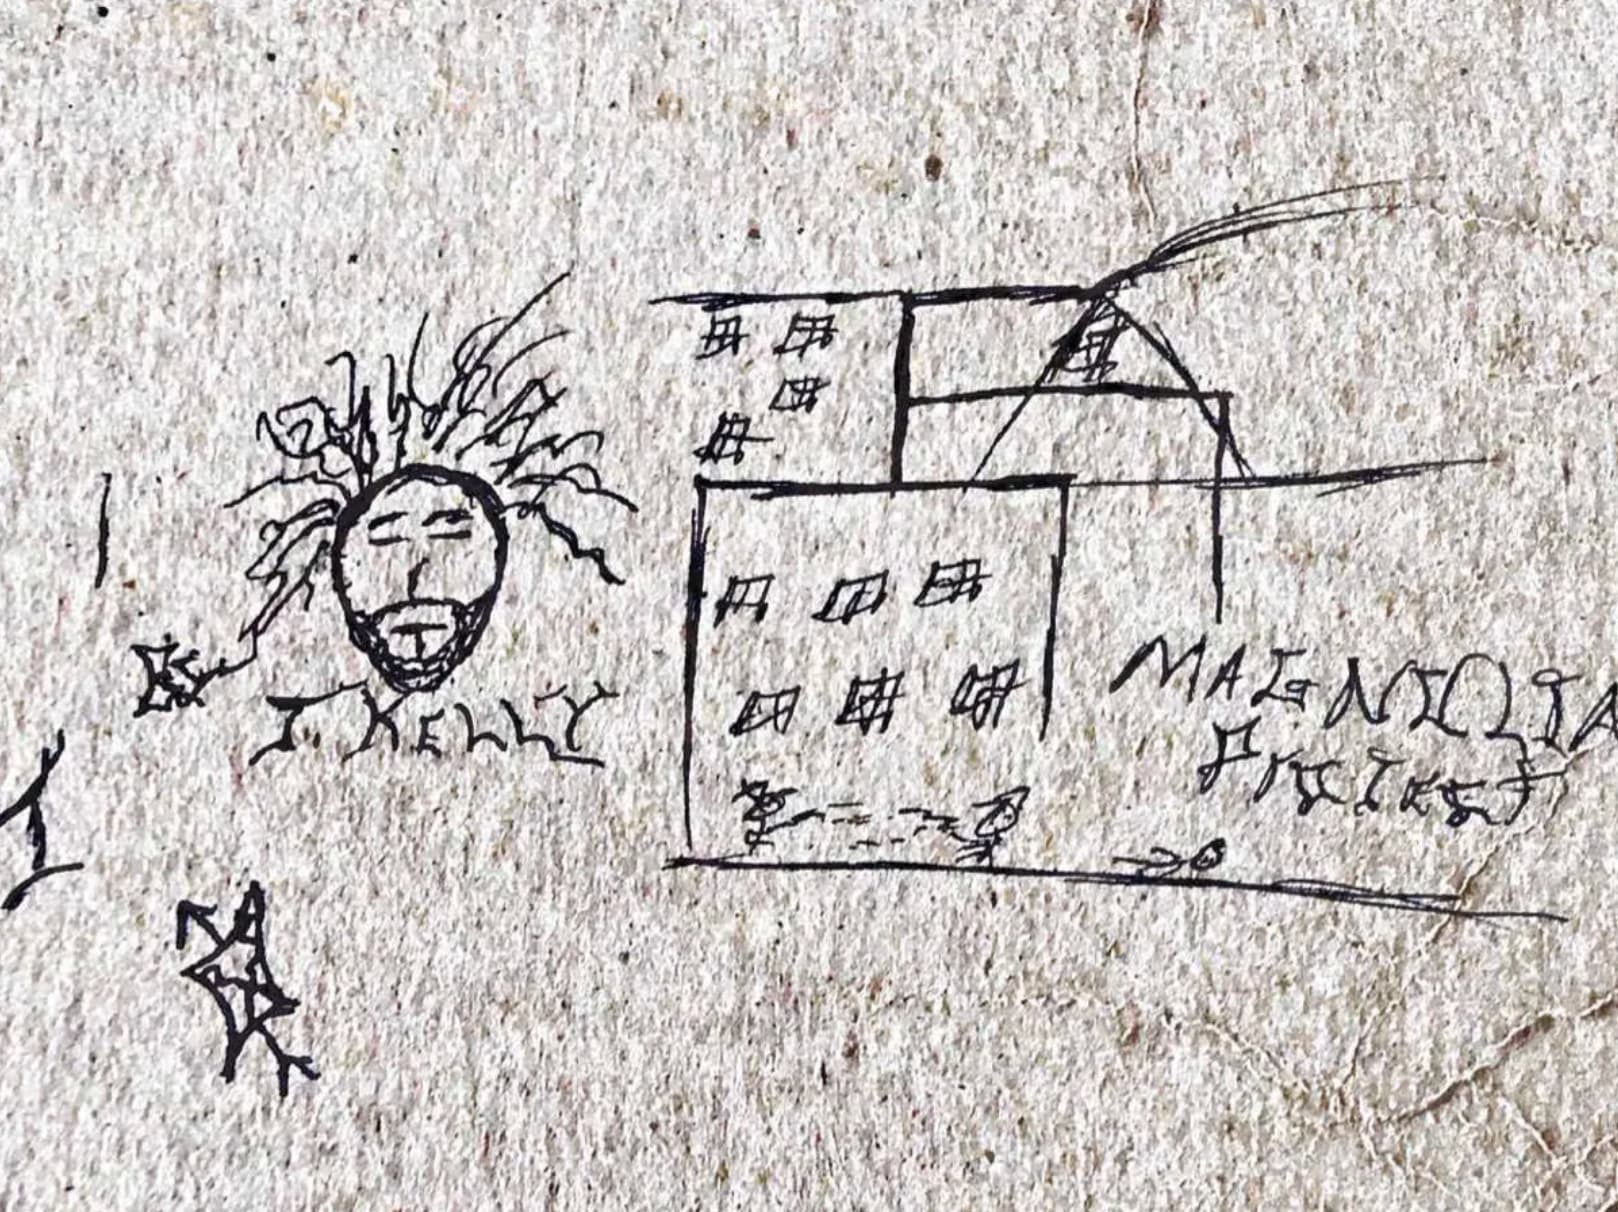 J. KELLY
MAGNOLIA
Projects